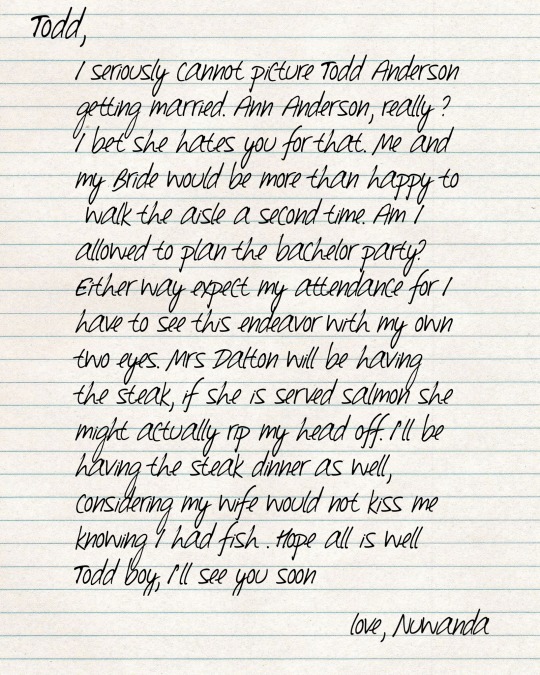 Todd,
I seriously cannot picture Todd Anderson
getting married. Ann Anderson, really?
I bet she hates you for that. Me and
my Bride would be more than happy to
walk the aisle a second time. Am I
allowed to plan the bachelor party?
Either way expect my attendance for I
have to see this endeavor with my own
two eyes. Mrs Dalton will be having
the steak, if she is served salmon she
might actually rip my head off. I'll be
having the steak dinner as well,
considering my wife would not kiss me
knowing I had fish. Hope all is well
Todd boy, I'll see you soon
love, Nuwanda